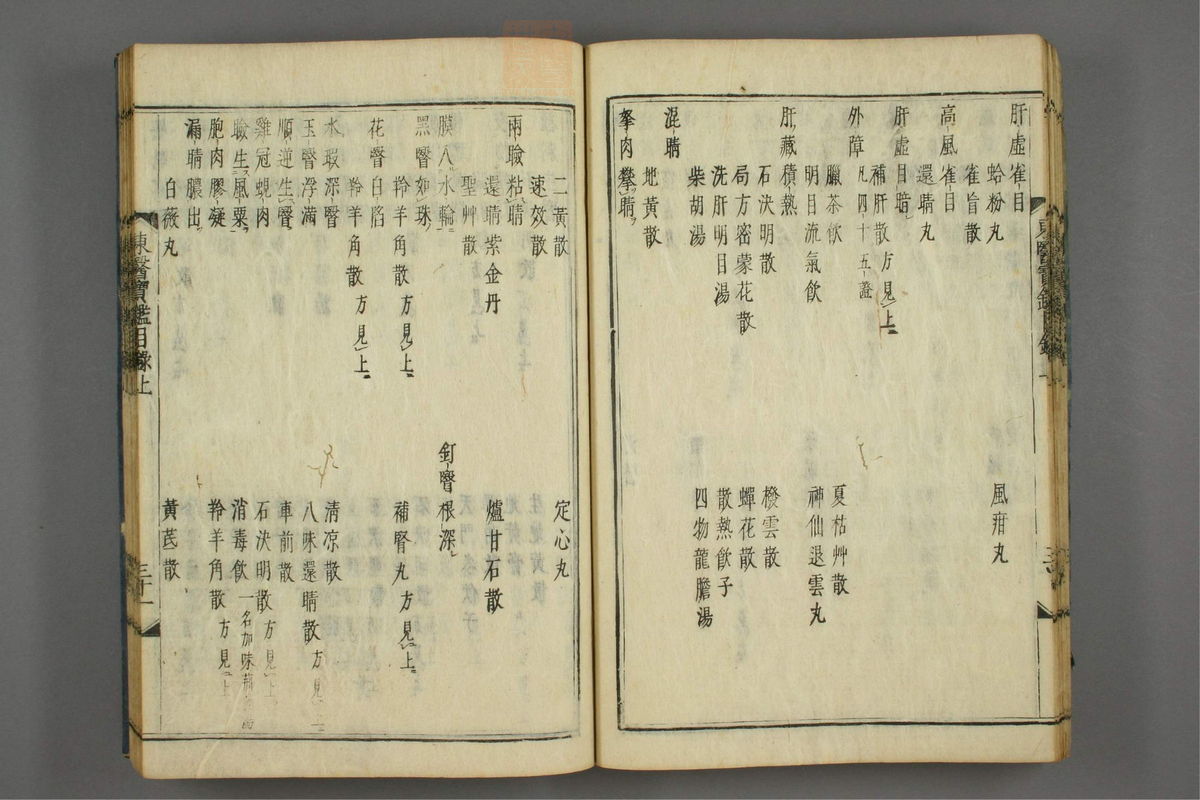 肝虛雀目
蛤粉丸　風疳丸
雀盲散
高風雀目
還睛丸
肝虛目暗
補肝散方見上
外障
凡四十五證
臘茶飲　夏枯艸散
明目流氣飲　神仙退雲丸
肝藏積熱
石決明散　撥雲散
局方密蒙花散　蟬花散
洗肝明目湯　散熱飮子
柴胡湯　四物龍膽湯
混睛
地黃散
拳肉攀睛
東醫寶鑑目錄上
二黃散　定心丸
速效散
兩瞼粘睛
還睛紫金丹　爐甘石散
聖艸散
膜入水輪　釘瞖根深
黑瞖如珠
羚羊角散方見上　補腎丸方見上
花瞖白陷
羚羊角散方見上
水瑕深瞖　清凉散
玉瞖浮滿　八味還睛散方見上
順逆生瞖　車前散
雞冠蜆肉　石決明散方見上
瞼生風粟　消毒飮一名加味荊黃
胞肉膠凝　羚羊角散方見上
漏睛膿出
白薇丸　黃芪散
東醫寶鑑目錄上　三十一